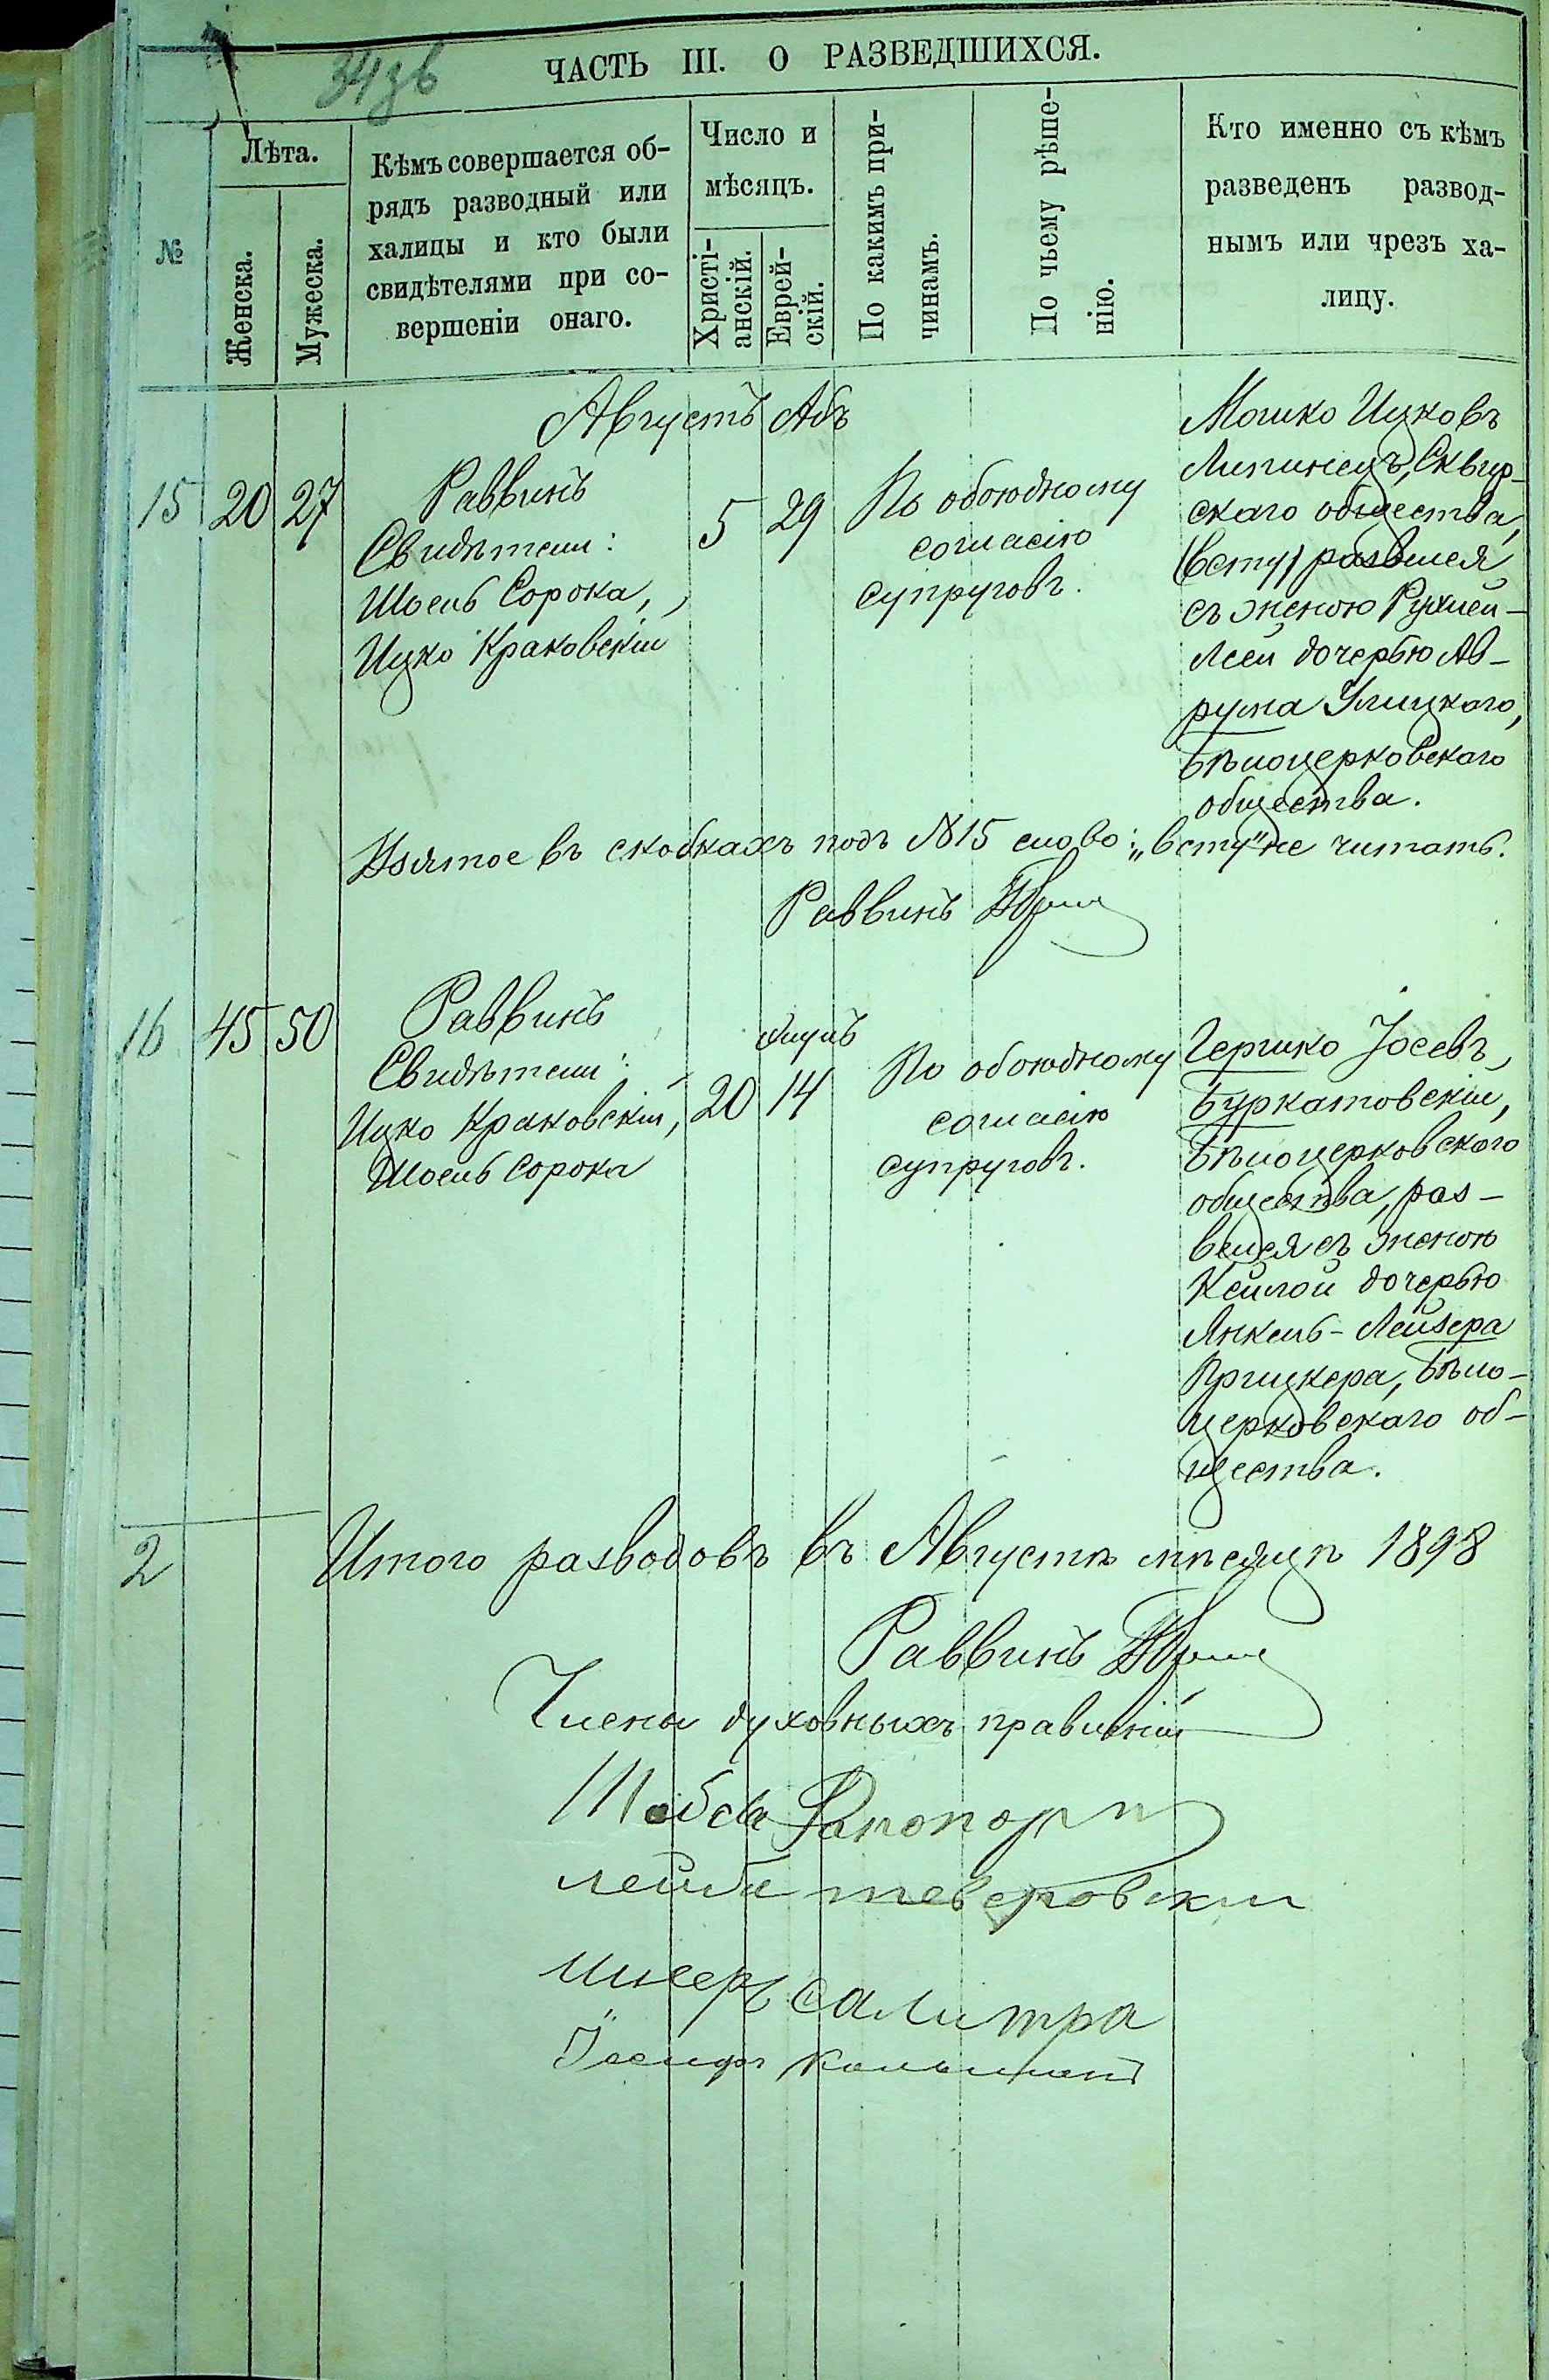 34зв
ЧАСТЬ III. О РАЗВЕДШИХСЯ.
№
Лѣта.
Женска.
Мужеска.
Кѣмъ совершается об-
рядъ разводный или
халицы и кто были
свидѣтелями при со-
вершеніи онаго.
Число и
мѣсяцъ.
Христі-
анскій.
Еврей-
скій.
По какимъ при-
чинамъ.
По чьему рѣше-
нію.
Кто именно съ кѣмъ
разведенъ развод-
нымъ или чрезъ ха-
лицу.
Августъ Абъ
15 20 27
Раввинъ
Свидѣтели:
Шоель Сорока,
Ицко Краковскій
5 29
По обоюдному
согласію
супруговъ.
Мошко Ицковъ
Липинецъ, Сквир-
скаго общества,
(всту) развелся
съ женою Рухлей-
Леей дочерью Ав-
рума Улицкаго,
Бѣлоцерковскаго
общества.
Взятое въ скобкахъ подъ №15 слово: „всту" не читать.
Раввинъ
16 45 50
Раввинъ
Свидѣтели:
Ицко Краковскій,
Шоель Сорока
20
Элулъ
14
По обоюдному
согласію
супруговъ.
Гершко Іосевъ,
Буркатовскій,
Бѣлоцерковскаго
общества, раз-
велся съ женою
Кейлой дочерью
Янкель-Лейзера
Прицкера, Бѣло-
церковскаго об-
щества.
2 Итого разводовъ въ Августѣ мѣсяцѣ 1898
Раввинъ
Члены духовныхъ правленій
Рапопортъ
лейбе тверовски
салитра
Іосифъ